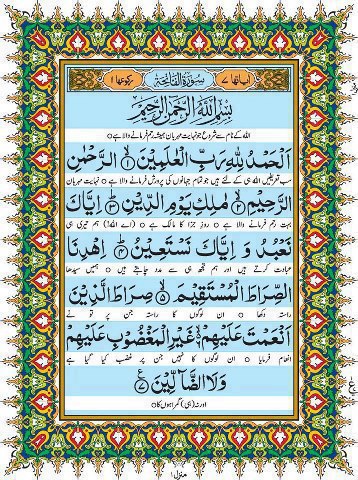 اٰیاتھا ۷ سُوْرَۃُ الْفَاتِحَۃِ رکوعھا ۱
بِسْمِ اللّٰهِ الرَّحْمٰنِ الرَّحِیْمِ
اللہ کے نام سے شروع جو نہایت مہربان ہمیشہ رحم فرمانے والا ہے ○
اَلْحَمْدُ لِلّٰهِ رَبِّ الْعٰلَمِیْنَ ۙ﴿۱﴾ الرَّحْمٰنِ
سب تعریفیں اللہ ہی کے لئے ہیں جو تمام جہانوں کی پرورش فرمانے والا ہے ○ نہایت مہربان
الرَّحِیْمِ ۙ﴿۲﴾ مٰلِكِ یَوْمِ الدِّیْنِ ؕ﴿۳﴾ اِیَّاكَ
بہت رحم فرمانے والا ہے ○ روزِ جزا کا مالک ہے ○ (اے اللہ!) ہم تیری ہی
نَعْبُدُ وَ اِیَّاكَ نَسْتَعِیْنُ ؕ﴿۴﴾ اِهْدِنَا
عبادت کرتے ہیں اور ہم تجھ ہی سے مدد چاہتے ہیں ○ ہمیں سیدھا
الصِّرَاطَ الْمُسْتَقِیْمَ ۙ﴿۵﴾ صِرَاطَ الَّذِیْنَ
راستہ دکھا ○ ان لوگوں کا راستہ جن پر تو نے
اَنْعَمْتَ عَلَیْهِمْ ۙ﴿۶﴾ غَیْرِ الْمَغْضُوْبِ عَلَیْهِمْ
انعام فرمایا ○ ان لوگوں کا نہیں جن پر غضب کیا گیا ہے
وَ لَا الضَّآلِّیْنَ ﴿۷﴾
اور نہ (ہی) گمراہوں کا ○
منزل ۱